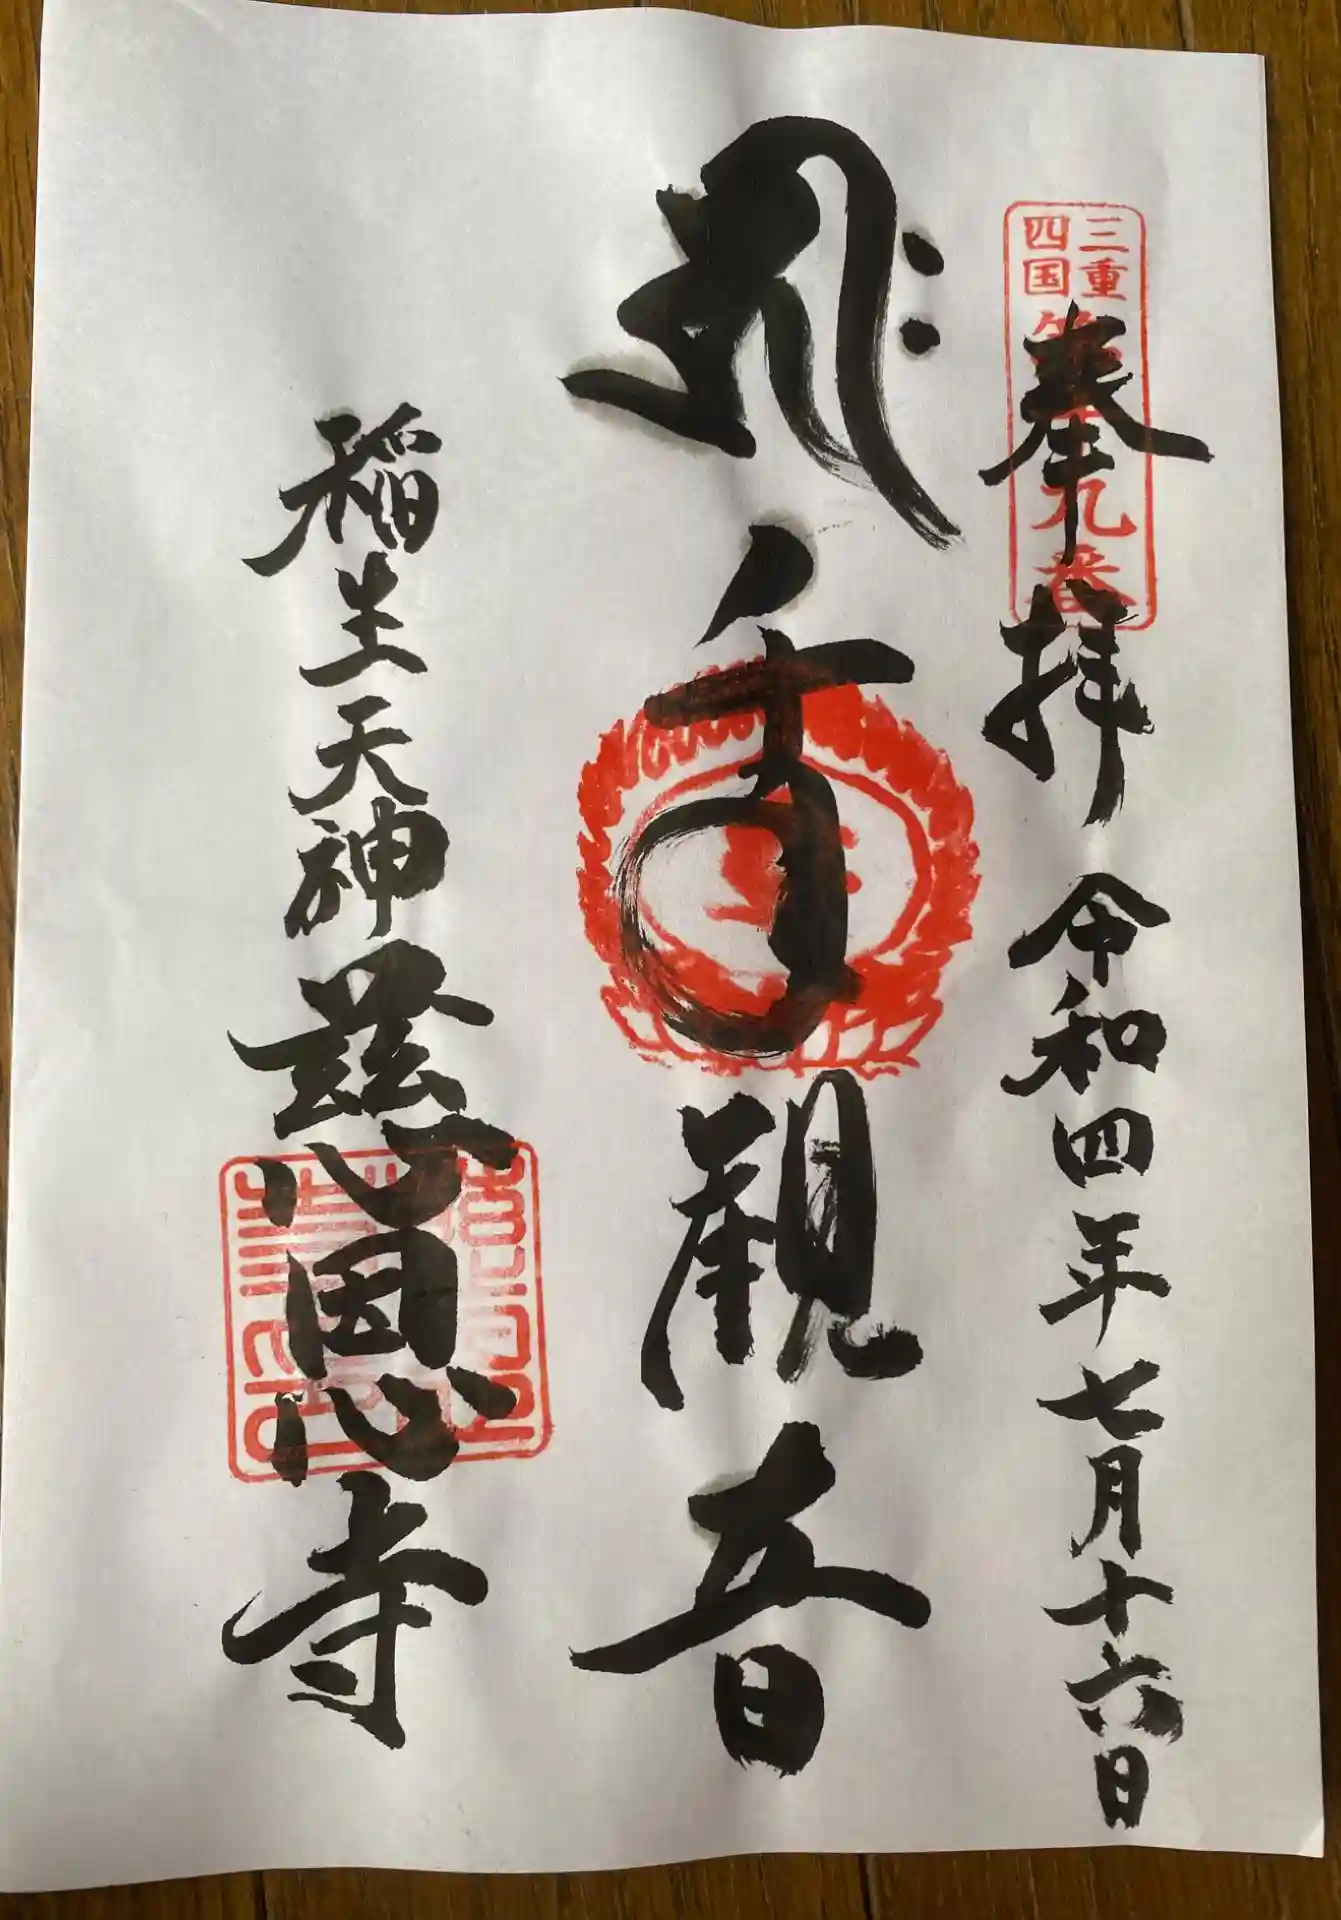 三重
四国
九番
奉拝 令和四年七月十六日
千手観音
稲生天神 慈恩寺